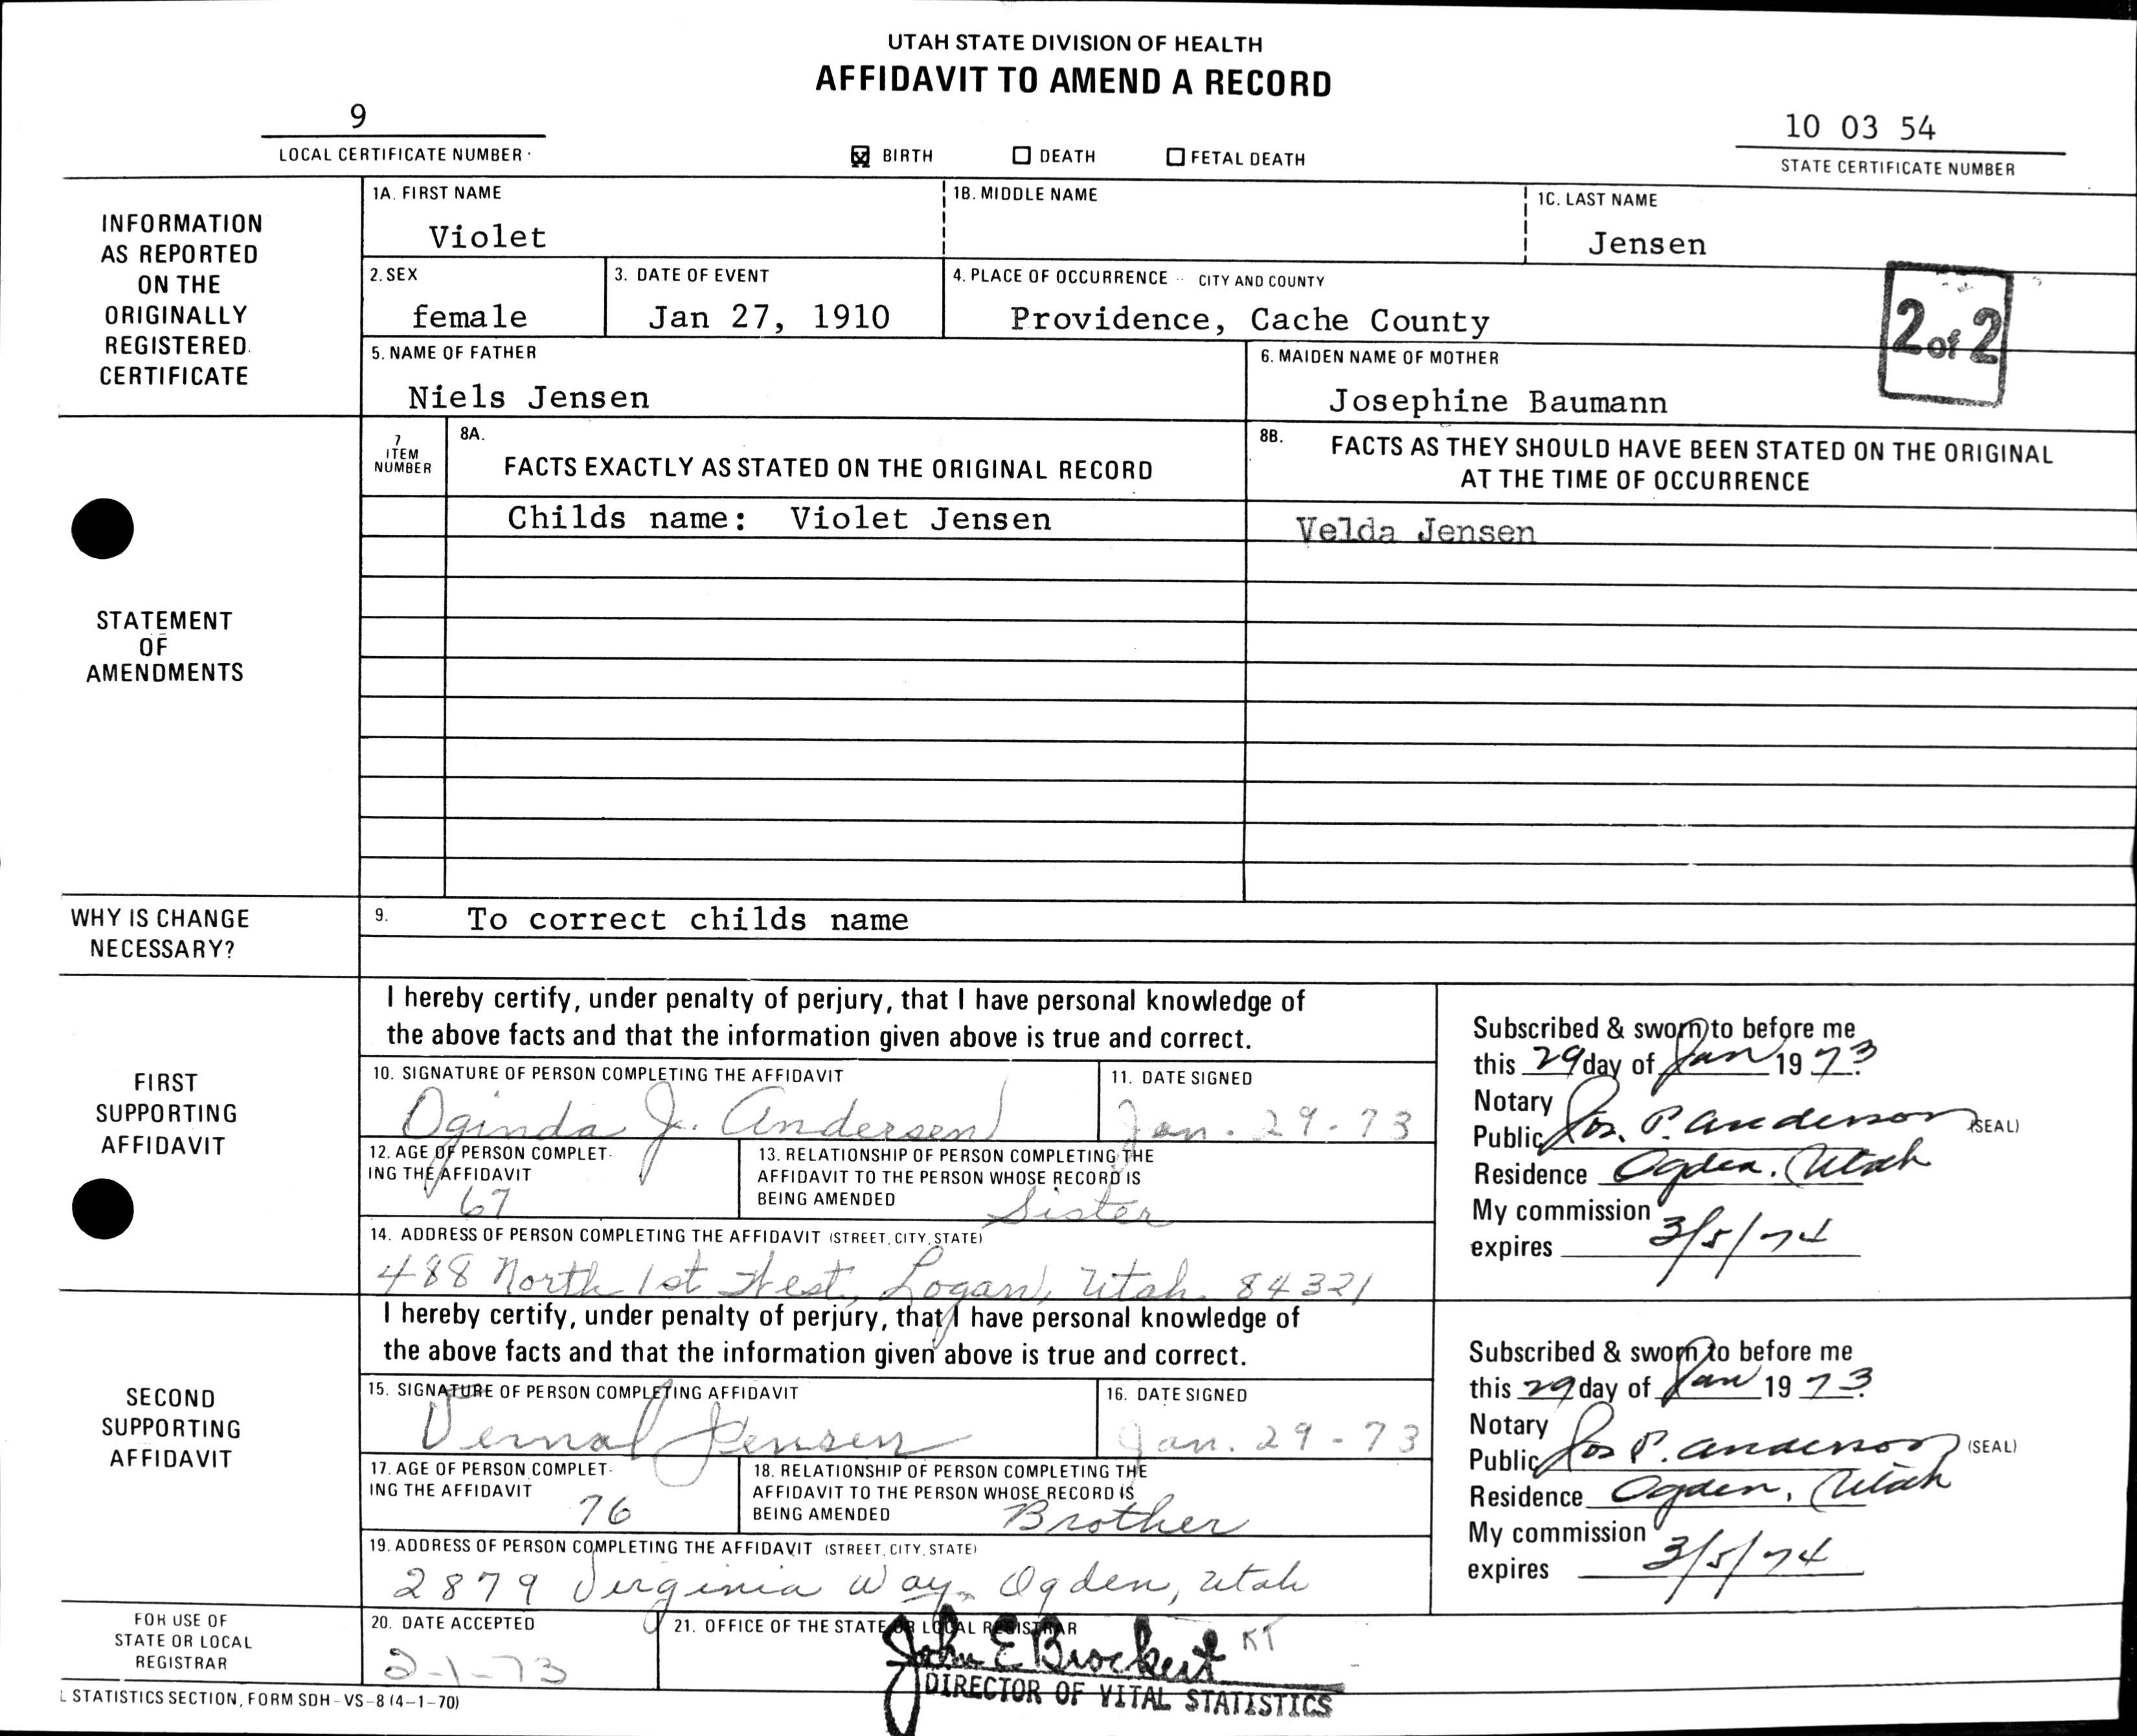 UTAH STATE DIVISION OF HEALTH
AFFIDAVIT TO AMEND A RECORD
9
LOCAL CERTIFICATE NUMBER
☒ BIRTH ☐ DEATH ☐ FETAL DEATH
10 03 54
STATE CERTIFICATE NUMBER
INFORMATION
AS REPORTED
ON THE
ORIGINALLY
REGISTERED
CERTIFICATE
1A. FIRST NAME
Violet
1B. MIDDLE NAME
1C. LAST NAME
Jensen
2. SEX
female
3. DATE OF EVENT
Jan 27, 1910
4. PLACE OF OCCURRENCE -- CITY AND COUNTY
Providence, Cache County
2 of 2
5. NAME OF FATHER
Niels Jensen
6. MAIDEN NAME OF MOTHER
Josephine Baumann
STATEMENT
OF
AMENDMENTS
7
ITEM
NUMBER
8A.
FACTS EXACTLY AS STATED ON THE ORIGINAL RECORD
8B. FACTS AS THEY SHOULD HAVE BEEN STATED ON THE ORIGINAL
AT THE TIME OF OCCURRENCE
Childs name: Violet Jensen
Velda Jensen
WHY IS CHANGE
NECESSARY?
9. To correct childs name
FIRST
SUPPORTING
AFFIDAVIT
I hereby certify, under penalty of perjury, that I have personal knowledge of
the above facts and that the information given above is true and correct.
10. SIGNATURE OF PERSON COMPLETING THE AFFIDAVIT
Oginda J. Andersen
11. DATE SIGNED
Jan. 29-73
12. AGE OF PERSON COMPLET-
ING THE AFFIDAVIT
67
13. RELATIONSHIP OF PERSON COMPLETING THE
AFFIDAVIT TO THE PERSON WHOSE RECORD IS
BEING AMENDED
Sister
14. ADDRESS OF PERSON COMPLETING THE AFFIDAVIT (STREET, CITY, STATE)
488 North 1st West, Logan, Utah. 84321
Subscribed & sworn to before me
this 29 day of Jan 19 73
Notary
Public Jos. P. Anderson (SEAL)
Residence Ogden, Utah
My commission
expires 3/5/74
SECOND
SUPPORTING
AFFIDAVIT
I hereby certify, under penalty of perjury, that I have personal knowledge of
the above facts and that the information given above is true and correct.
15. SIGNATURE OF PERSON COMPLETING AFFIDAVIT
Vernal Jensen
16. DATE SIGNED
Jan. 29-73
17. AGE OF PERSON COMPLET-
ING THE AFFIDAVIT
76
18. RELATIONSHIP OF PERSON COMPLETING THE
AFFIDAVIT TO THE PERSON WHOSE RECORD IS
BEING AMENDED
Brother
19. ADDRESS OF PERSON COMPLETING THE AFFIDAVIT (STREET, CITY, STATE)
2879 Virginia Way, Ogden, Utah
Subscribed & sworn to before me
this 29 day of Jan 19 73
Notary
Public Jos P. Anderson (SEAL)
Residence Ogden, Utah
My commission
expires 3/5/74
FOR USE OF
STATE OR LOCAL
REGISTRAR
20. DATE ACCEPTED
2-1-73
21. OFFICE OF THE STATE OR LOCAL REGISTRAR
John E Brockert KT
DIRECTOR OF VITAL STATISTICS
L STATISTICS SECTION, FORM SDH-VS-8 (4-1-70)